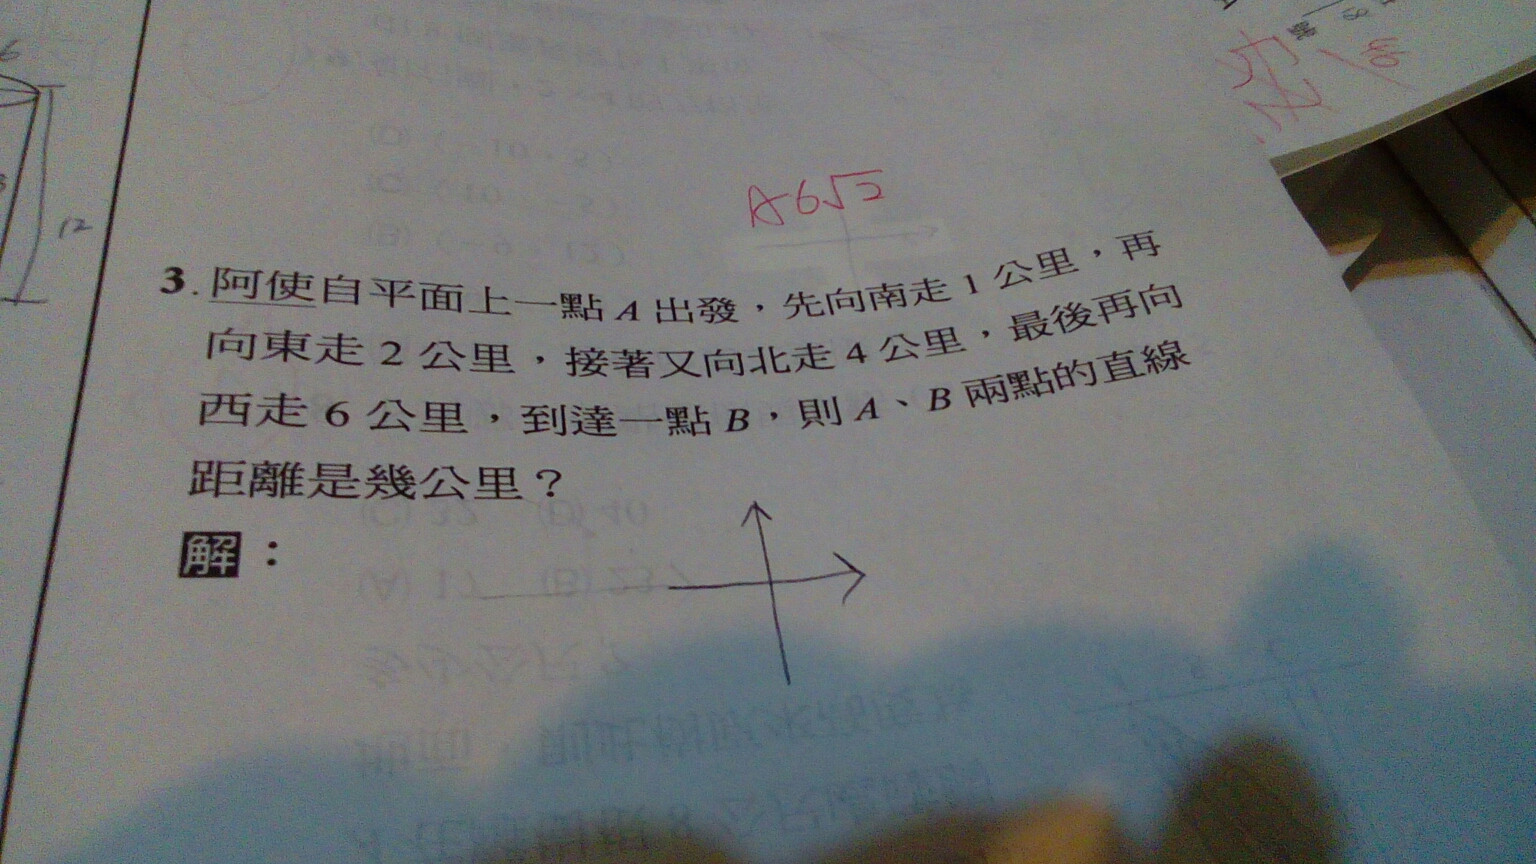 6
12
A 6√2
3. 阿使自平面上一點 A 出發，先向南走 1 公里，再
向東走 2 公里，接著又向北走 4 公里，最後再向
西走 6 公里，到達一點 B，則 A、B 兩點的直線
距離是幾公里？
解：